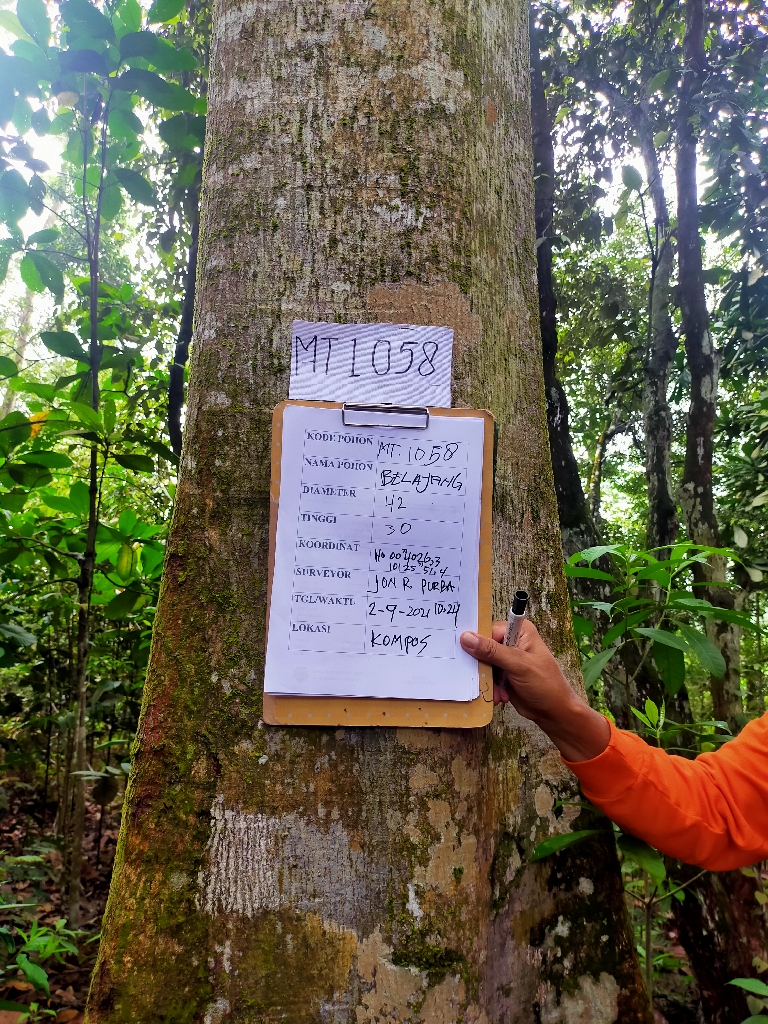 MT 1058
KODE POHON MT. 1058
NAMA POHON BELAJANG
DIAMETER 42
TINGGI 30
KOORDINAT
SURVEYOR JON R PURBA
TGL/WAKTU 2-9-2021 10:24
LOKASI KOMPOS